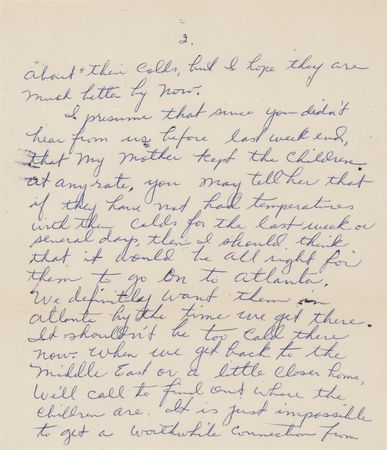 2.
about their colds, but I hope they are
much better by now.
I presume that since you didn't
hear from us before last week end,
that my mother kept the children.
At any rate, you may tell her that
if they have not had temperatures
with their colds for the last week or
several days, then I should think
that it would be all right for
them to go on to Atlanta.
We definitely want them in
Atlanta by the time we get there.
It shouldn't be too cold there
now. When we get back to the
Middle East or a little closer home,
we'll call to find out where the
children are. It is just impossible
to get a worthwhile connection from